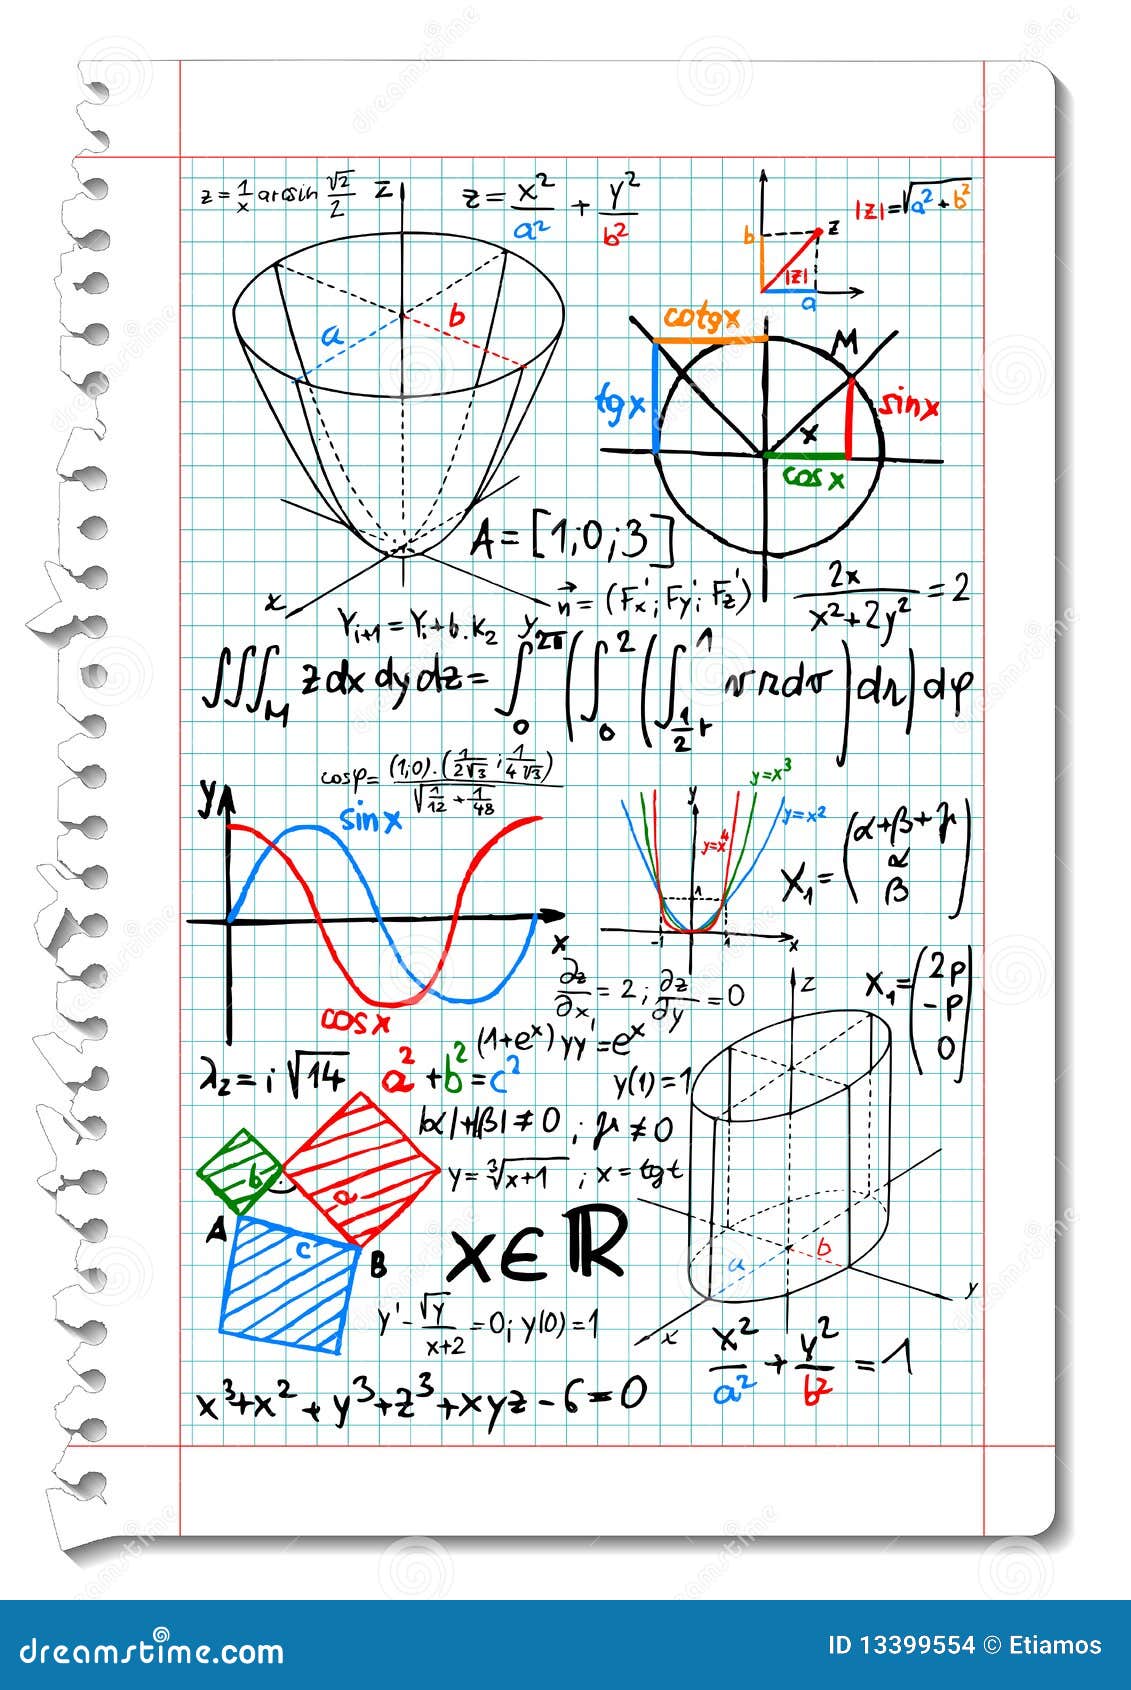 z = 1/x arcsin √2/2
z
z = x²/a² + y²/b²
|z| = √a² + b²
b
z
|z|
a
a
b
cotgx
M
tgx
sinx
x
cosx
A = [1;0;3]
x
y
n⃗ = (Fx'; Fy'; Fz')
2x/x²+2y² = 2
Yi+1 = Yi + b.K2
∫∫∫M z dx dy dz = ∫0 2π (∫0 2 (∫½r 1 v r dv) dr) dφ
cosφ = (1;0).(1/2√3 ; 1/4√3)/√1/12 + 1/48
y
sinx
x
cosx
y
y=x³
y=x²
y=x⁴
1
-1
1
x
X1 = (α+β+γ
α
β)
∂z/∂x = 2 ; ∂z/∂y = 0
z
X1 = (2p
-p
0)
(1+eˣ) yy' = eˣ
λ2 = i √14
a² + b² = c²
y(1) = 1
|α|+|β| ≠ 0 ; γ ≠ 0
y = ∛x+1 ; x = tgt
b
a
A
c
B
x∈ℝ
a
b
y
x
y' - √y/x+2 = 0; y(0) = 1
x²/a² + y²/b² = 1
x³+x² + y³+z³+xyz - 6 = 0
dreamstime
dreamstime.com
ID 13399554 © Etiamos